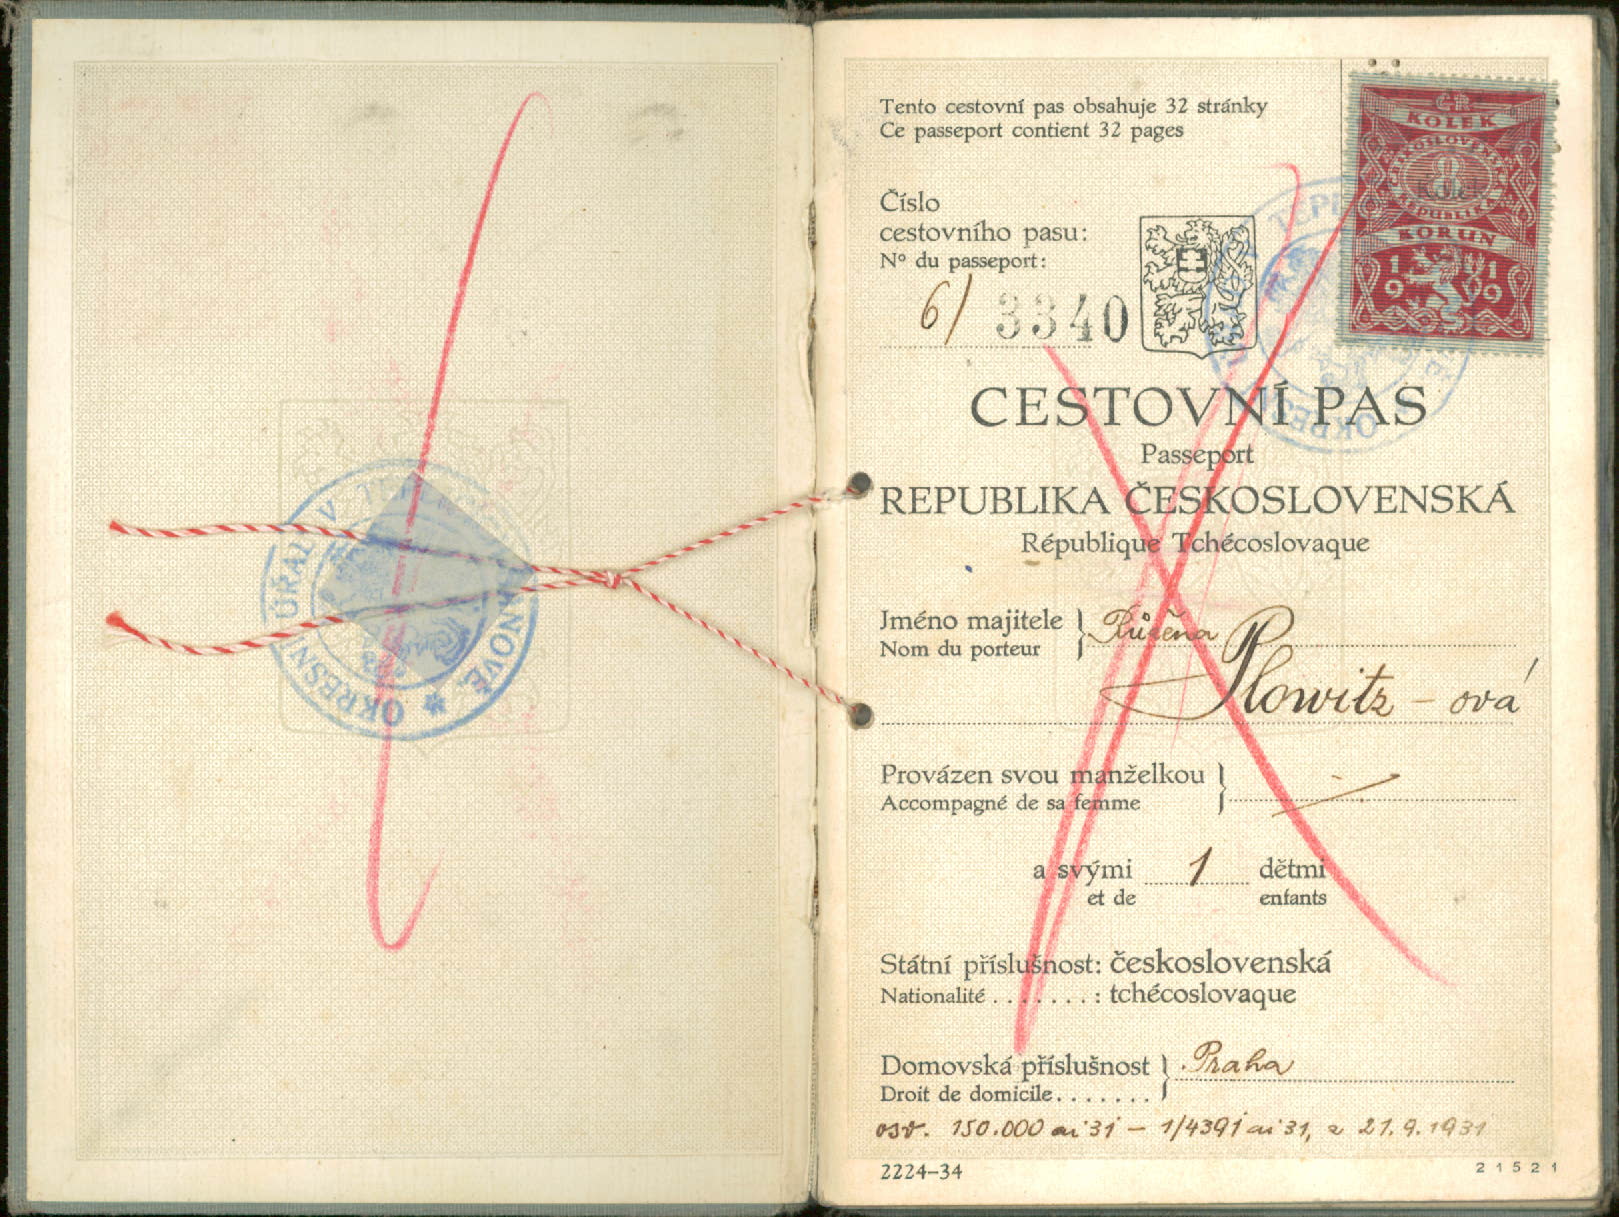 Tento cestovní pas obsahuje 32 stránky
Ce passeport contient 32 pages
ČR
KOLEK
ČESKOSLOVENSKÁ
8
REPUBLIKA
KORUN
1919
Číslo
cestovního pasu:
Nº du passeport:
6/ 3340
CESTOVNÍ PAS
Passeport
REPUBLIKA ČESKOSLOVENSKÁ
République Tchécoslovaque
Jméno majitele } Růžena
Nom du porteur
Plowitz – ová
Provázen svou manželkou }
Accompagné de sa femme
a svými 1 dětmi
et de enfants
Státní příslušnost: československá
Nationalité . . . . . . . : tchécoslovaque
Domovská příslušnost } Praha
Droit de domicile . . . . . . .
osv. 150.000 ai 31 – 1/4391 ai 31, z 21.9.1931
2224–34
21521
OKRESNÍ ÚŘAD V